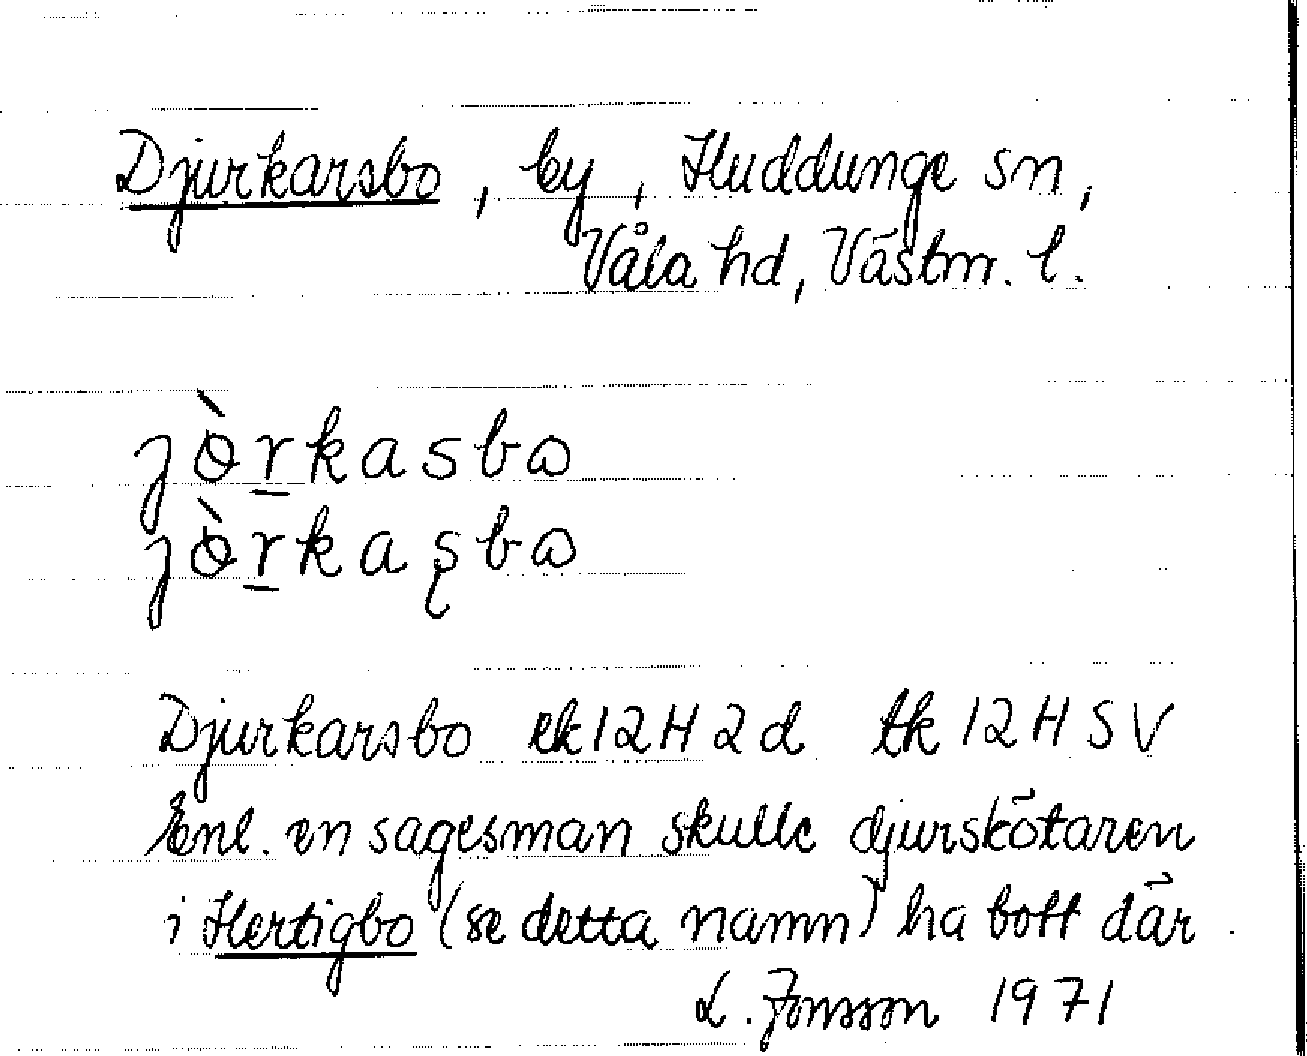 Djurkarsbo, by, Huddunge sn,
Våla hd, Västm. l.
jɵ̀r̲kasbɷ
jɵ̀r̲kaʂbɷ
Djurkarsbo ek 12H2d tk 12H SV
Enl. en sagesman skulle djurskötaren
i Hertigbo (se detta namn) ha bott där.
L. Jonsson 1971